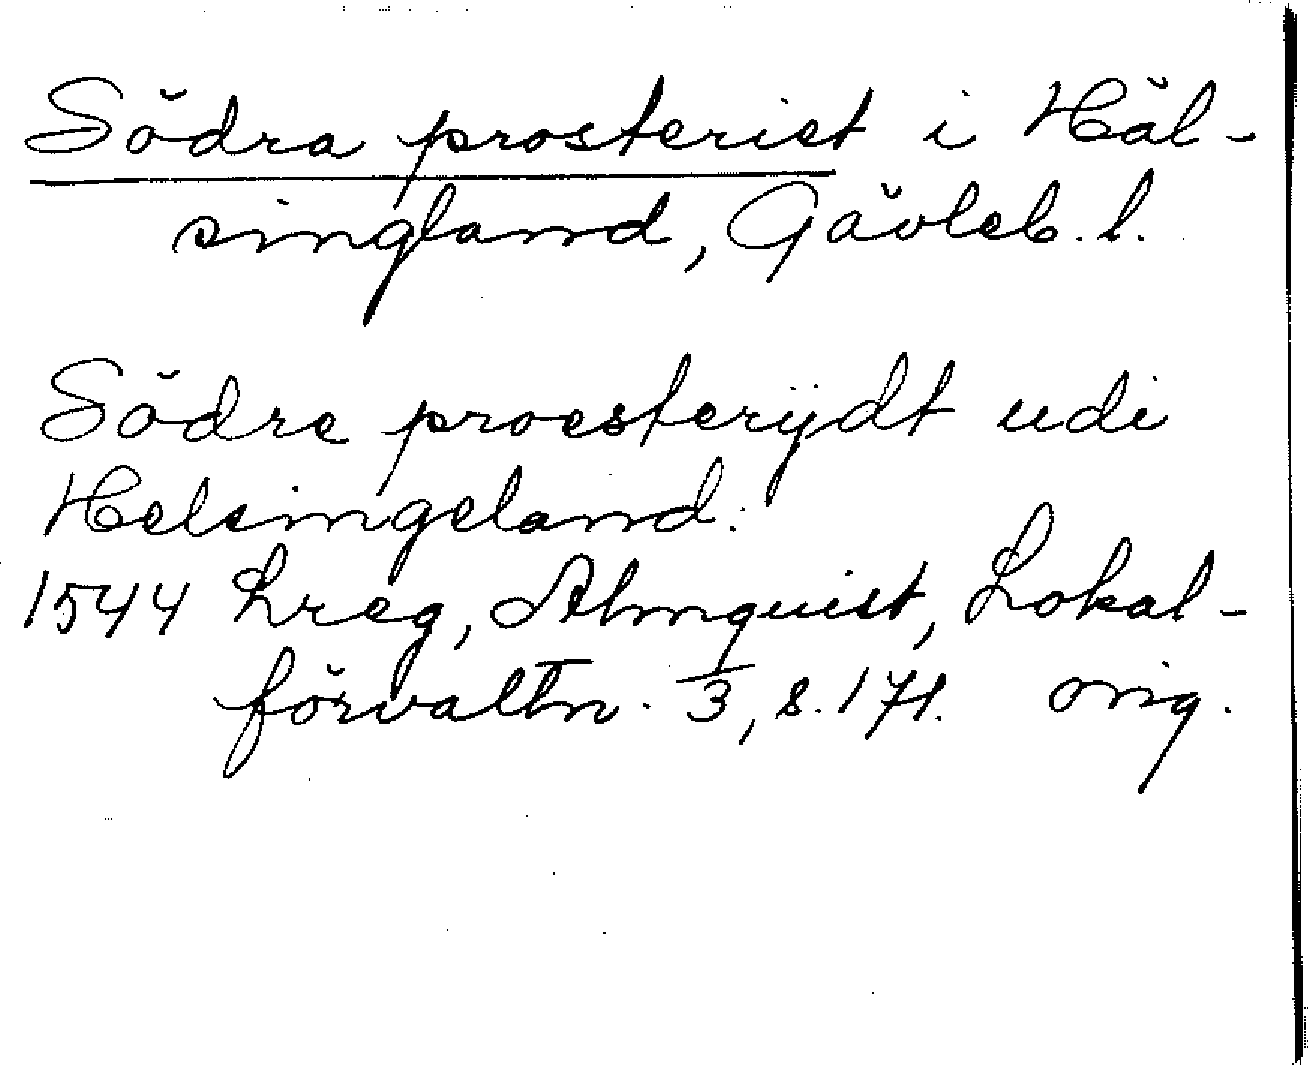 Södra prosteriet i Häl-
singland, Gävleb. l.
Södre proesterÿdt udi
Helsingeland.
1544 Lreg, Almquist, Lokal-
förvaltn. 3, s. 171. orig.